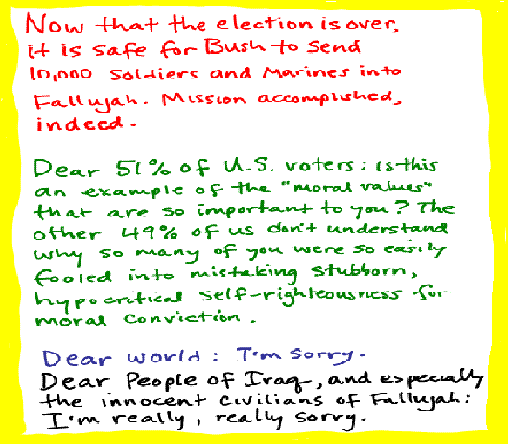 Now that the election is over,
it is safe for Bush to send
10,000 soldiers and Marines into
Fallujah. Mission accomplished,
indeed.
Dear 51% of U.S. voters: is this
an example of the "moral values"
that are so important to you? The
other 49% of us don't understand
why so many of you were so easily
fooled into mistaking stubborn,
hypocritical self-righteousness for
moral conviction.
Dear world: I'm sorry.
Dear People of Iraq, and especially
the innocent civilians of Fallujah:
I'm really, really sorry.